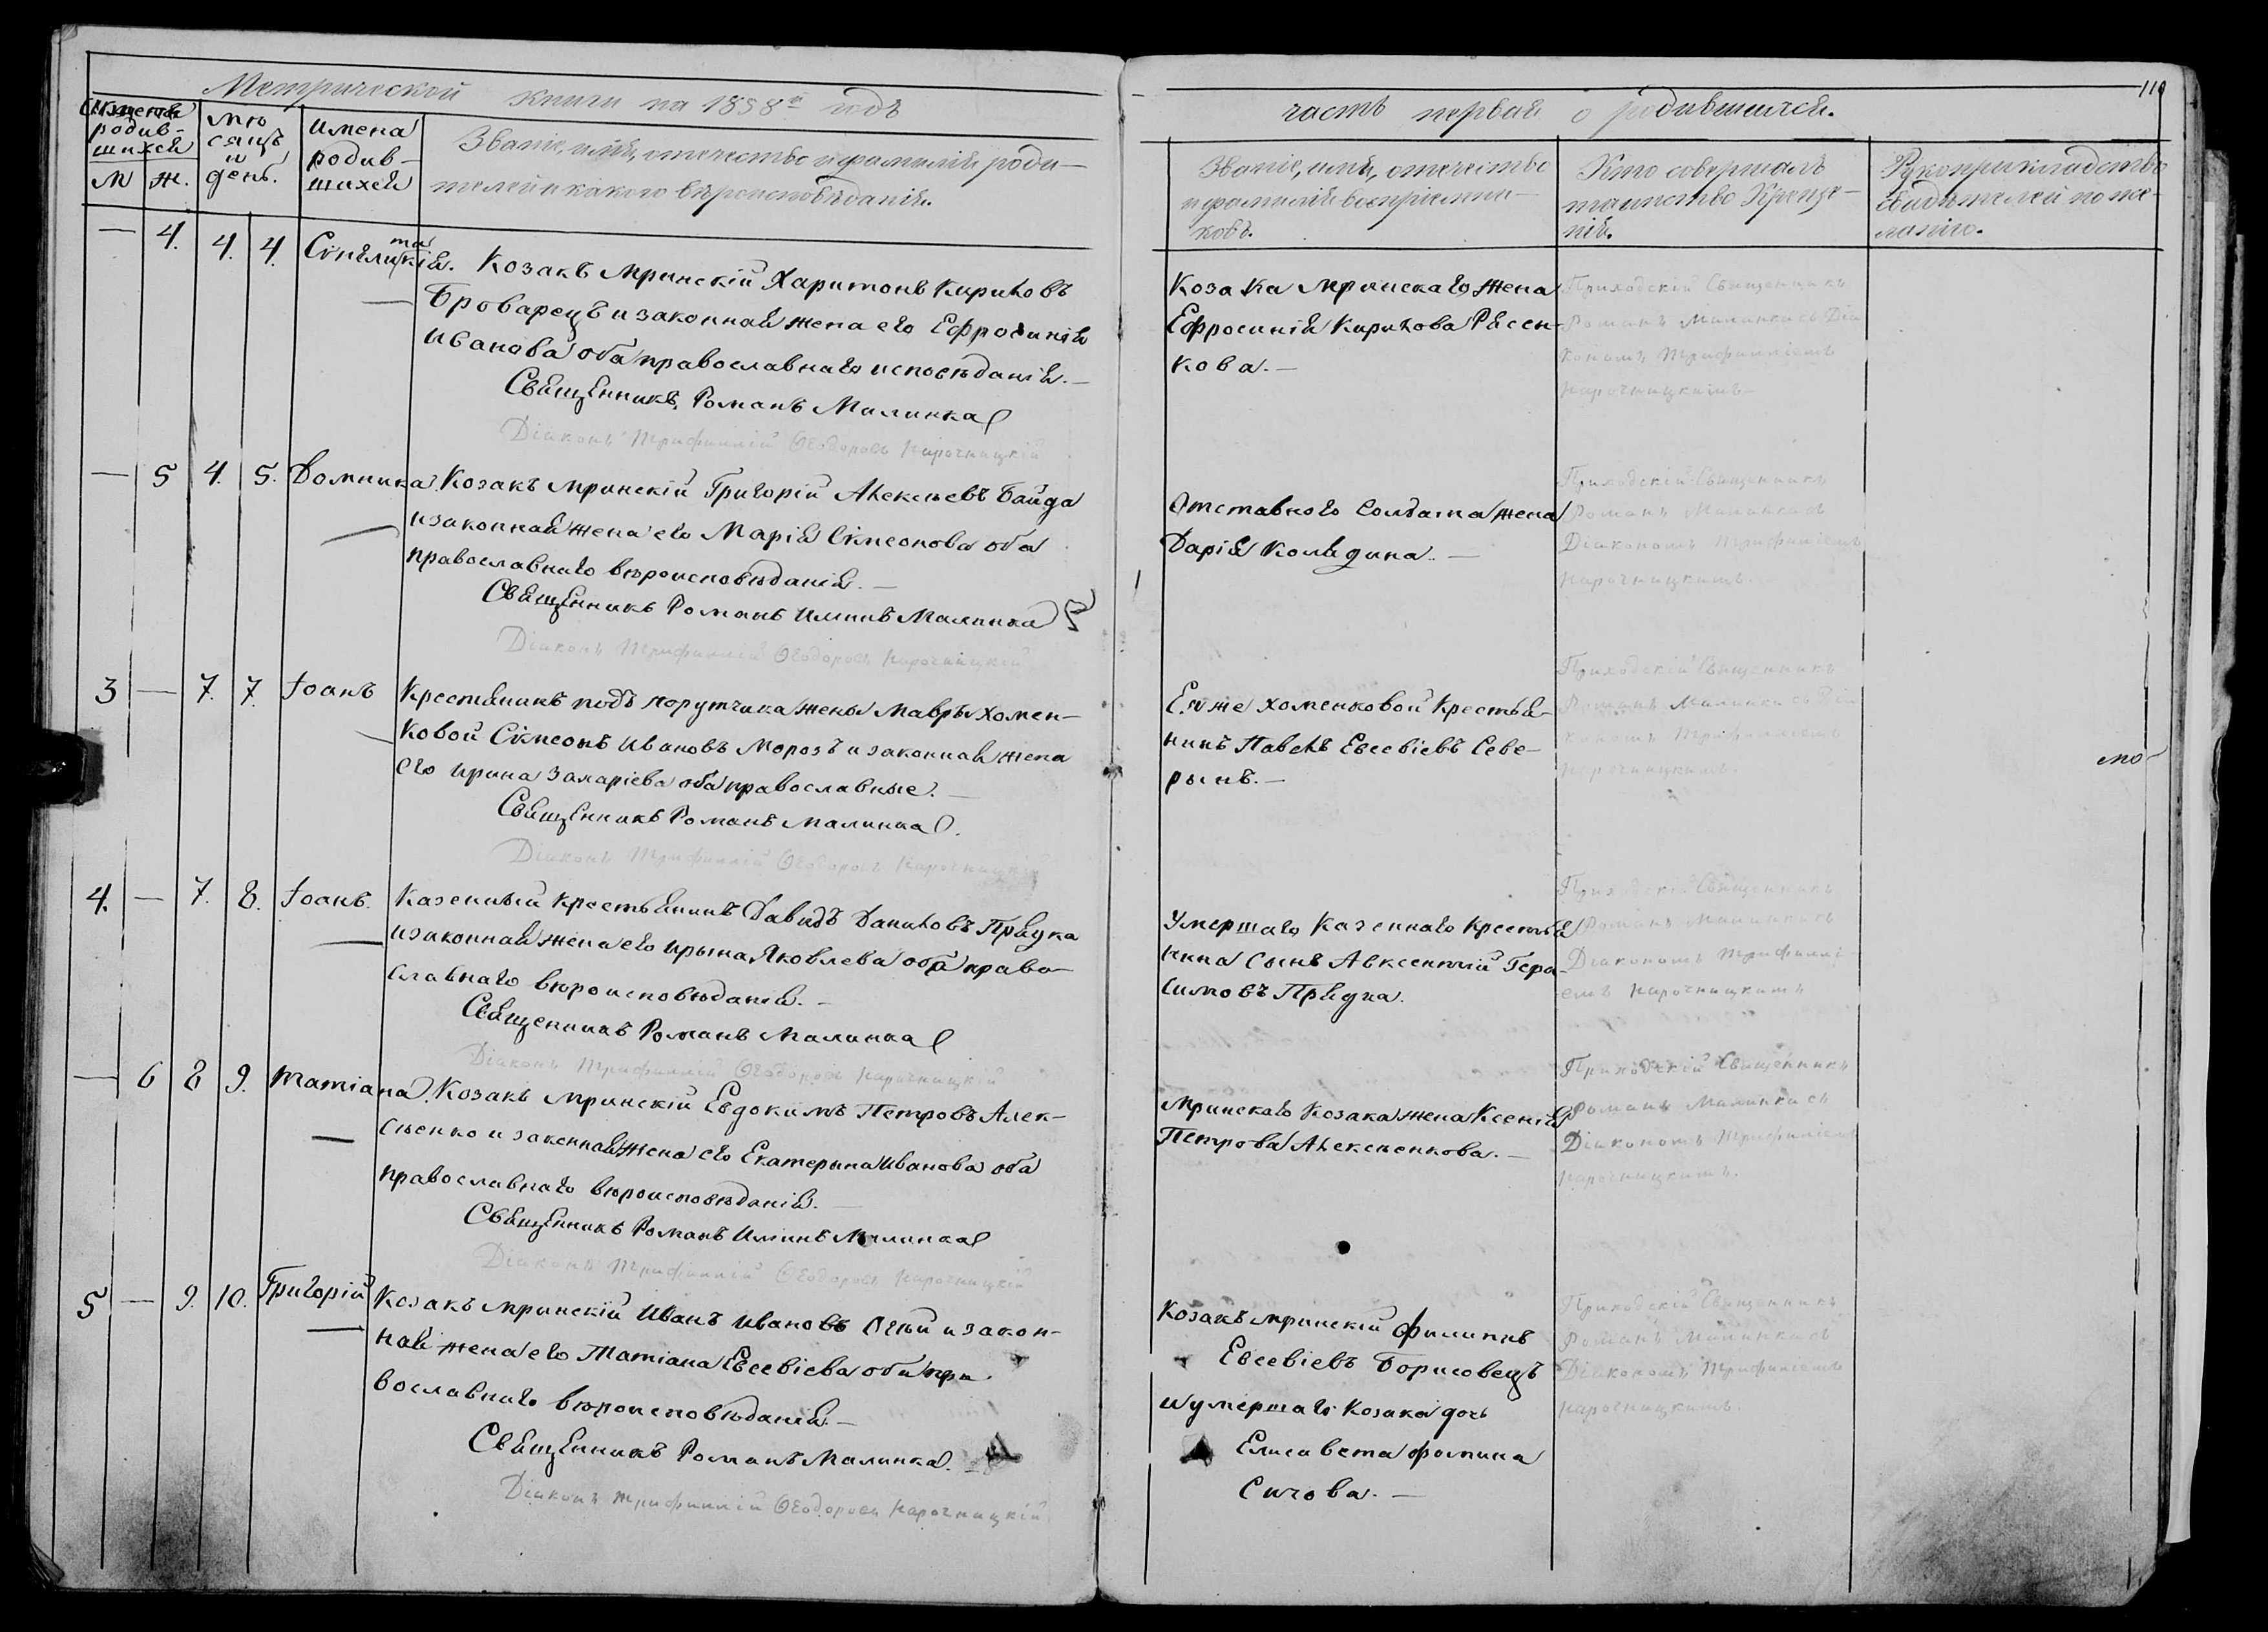 Метрической книги на 1858й годъ
часть первая о родившихся.
110
Счетъ родив-
шихся
М Ж.
Мѣ
сяцъ
и
день.
Имена
родив-
шихся
Званіе, имя, отечество и фамилія роди-
телей и какого вѣроисповѣданія.
Званіе, имя, отечество
и фамилія воспріемни-
ковъ.
Кто совершалъ
таинство Креще-
нія.
Рукоприкладство
свидѣтелей по же-
ланію.
— 4. 4. 4. Сѵнклитикія. Козакъ Мринскій Харитонъ Кириловъ
Броварецъ и законная жена его Ефросинія
Иванова оба православнаго исповѣданія.—
Священникъ Романъ Малинка
Діаконъ Трифиллій Ѳеодоровъ Нарочницкій
Козака Мринскаго жена
Ефросинія Кирилова
кова.—
Приходскій Священникъ
Романъ Малинка съ Діа
кономъ Трифилліемъ
Нарочницкимъ
— 5 4. 5. Домника. Козакъ Мринскій Григорій Алексѣевъ Байда
и законная жена его Марія Сѵмеонова оба
православнаго вѣроисповѣданія.—
Священникъ Романъ Малинка
Діаконъ Трифиллій Ѳеодоровъ Нарочницкій
Отставного Солдата жена
Дарія Колядина.—
Приходскій Священникъ
Романъ Малинка съ
Діакономъ Трифиліемъ
Нарочницкимъ.
3 — 7. 7. Іоанъ Крестянинъ подъ порутчика жены Мавры Хомен-
ковой Сѵмеонъ Ивановъ Морозъ и законная жена
его Ирина Захаріева оба православные.—
Священникъ Романъ Малинка.
Діаконъ Трифиллій Ѳеодоровъ Нарочницкій
Ея же Хоменковой Крестья-
нинъ Павелъ Евсевіевъ Севе-
рынъ.—
Приходскій Священникъ
Романъ Малинка съ Діа
кономъ Трифилліемъ
Нарочницкимъ.
мо-
4. — 7. 8. Іоанъ. Казенный крестьянинъ Давидъ Даниловъ Прядка
и законная жена его Ирына Яковлева оба право-
славнаго вѣроисповѣданія.—
Священникъ Романъ Малинка
Діаконъ Трифиллій Ѳеодоровъ Нарочницкій
Умершаго Казеннаго Крестья
нина сынъ Авксентій Гера-
симовъ Прядка.
Приходскій Священникъ
Романъ Малинка съ
Діакономъ Трифиллі
емъ Нарочницкимъ
— 6 8 9. Татіана. Козакъ Мринскій Евдокимъ Петровъ Алек-
сѣенко и законная жена его Екатерина Иванова оба
православнаго вѣроисповѣданія.—
Священникъ Романъ Малинка
Діаконъ Трифиллій Ѳеодоровъ Нарочницкій
Мринскаго Козака жена Ксенія
Петрова Алексѣенкова.—
Приходскій Священникъ
Романъ Малинка съ
Діакономъ Трифиліемъ
Нарочницкимъ.
5 — 9. 10. Григорій Козакъ Мринскій Иванъ Ивановъ и закон-
ная жена его Татіана Евсевіева оба пра
вославнаго вѣроисповѣданія.—
Священникъ Романъ Малинка.
Діаконъ Трифиллій Ѳеодоровъ Нарочницкій
Козакъ Мринскій Филипъ
Евсевіевъ Борисовецъ
и умершаго Козака дочь
Елисавета Фомина
Сичова.—
Приходскій Священникъ
Романъ Малинка съ
Діакономъ Трифиліемъ
Нарочницкимъ